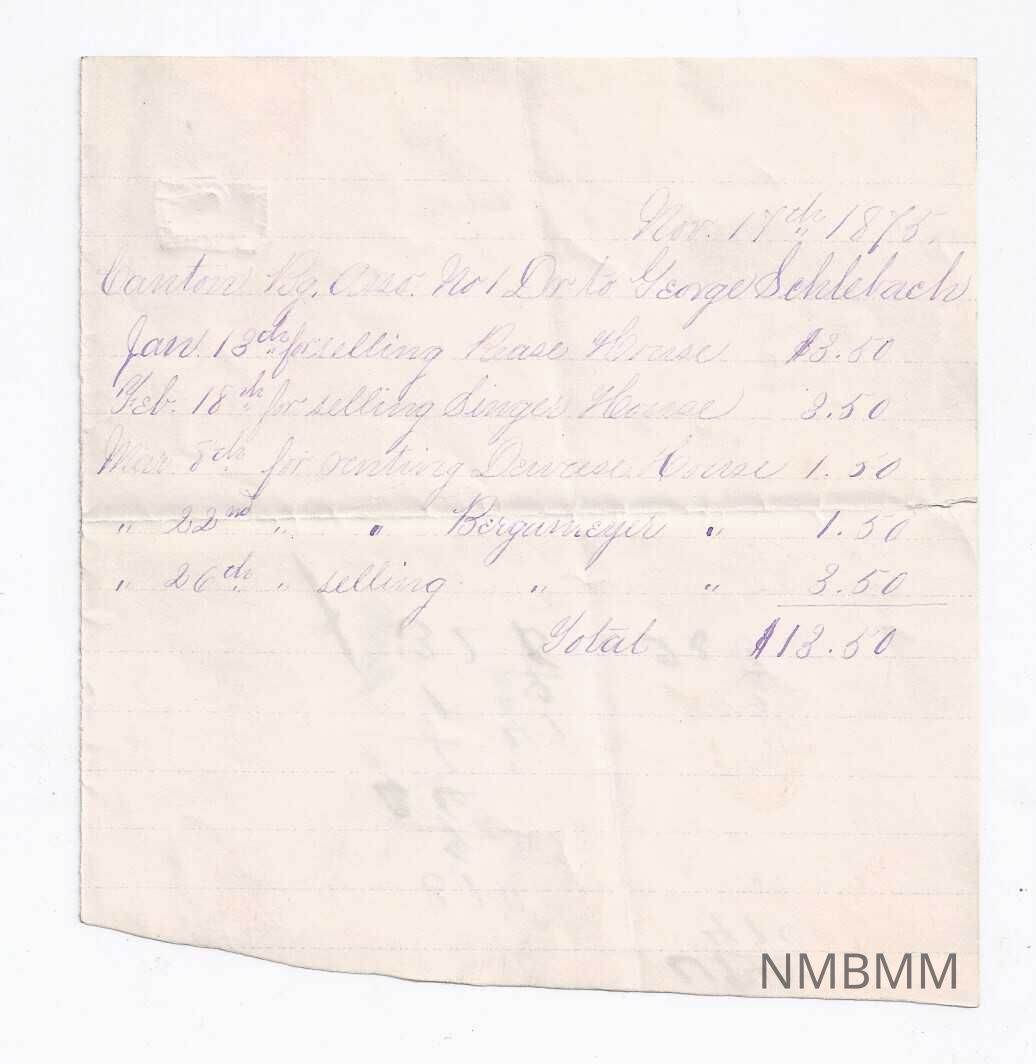 Nov. 17th 1875.
Canton Bg. Asso. No 1 Dr. to George Schlebach
Jan. 13th for selling Rease House $3.50
Feb. 18th for selling Singer House 3.50
Mar. 8th for renting Dewese House 1.50
" 22nd " " Bergumeyer " 1.50
" 26th " selling " " 3.50
Total $13.50
NMBMM